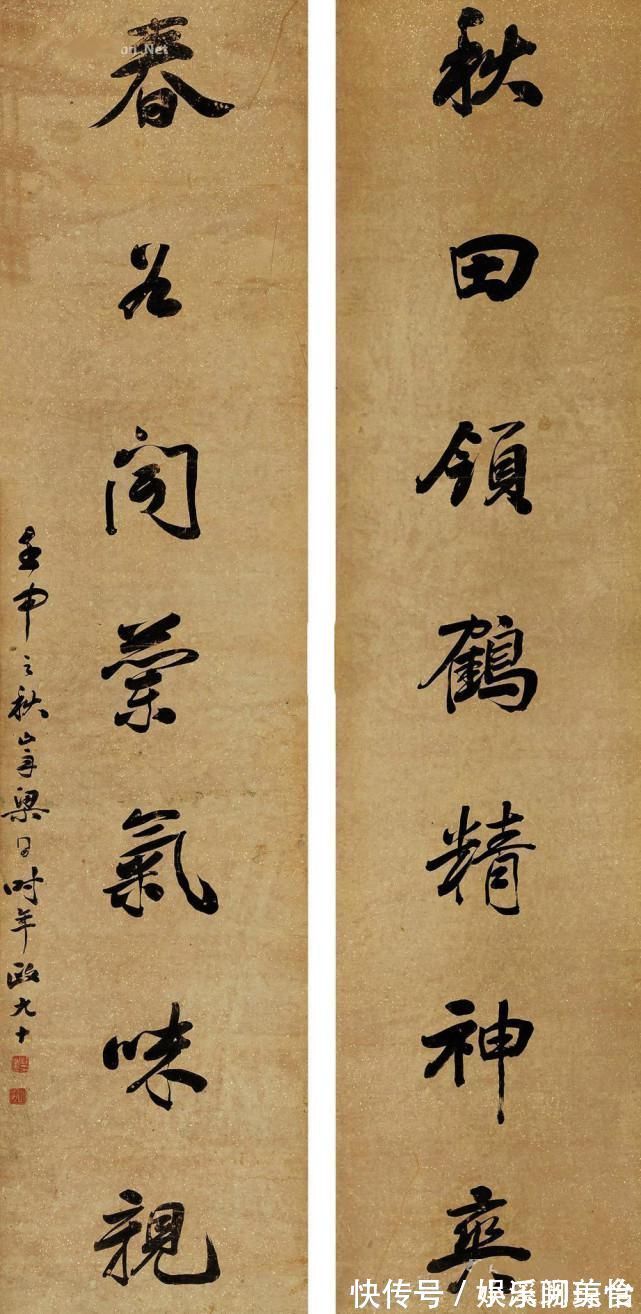 秋田領鶴精神爽
春谷聞蘭氣味親
壬申之秋山舟梁同時年政九十
ori.Net
快传号 / 娱溪